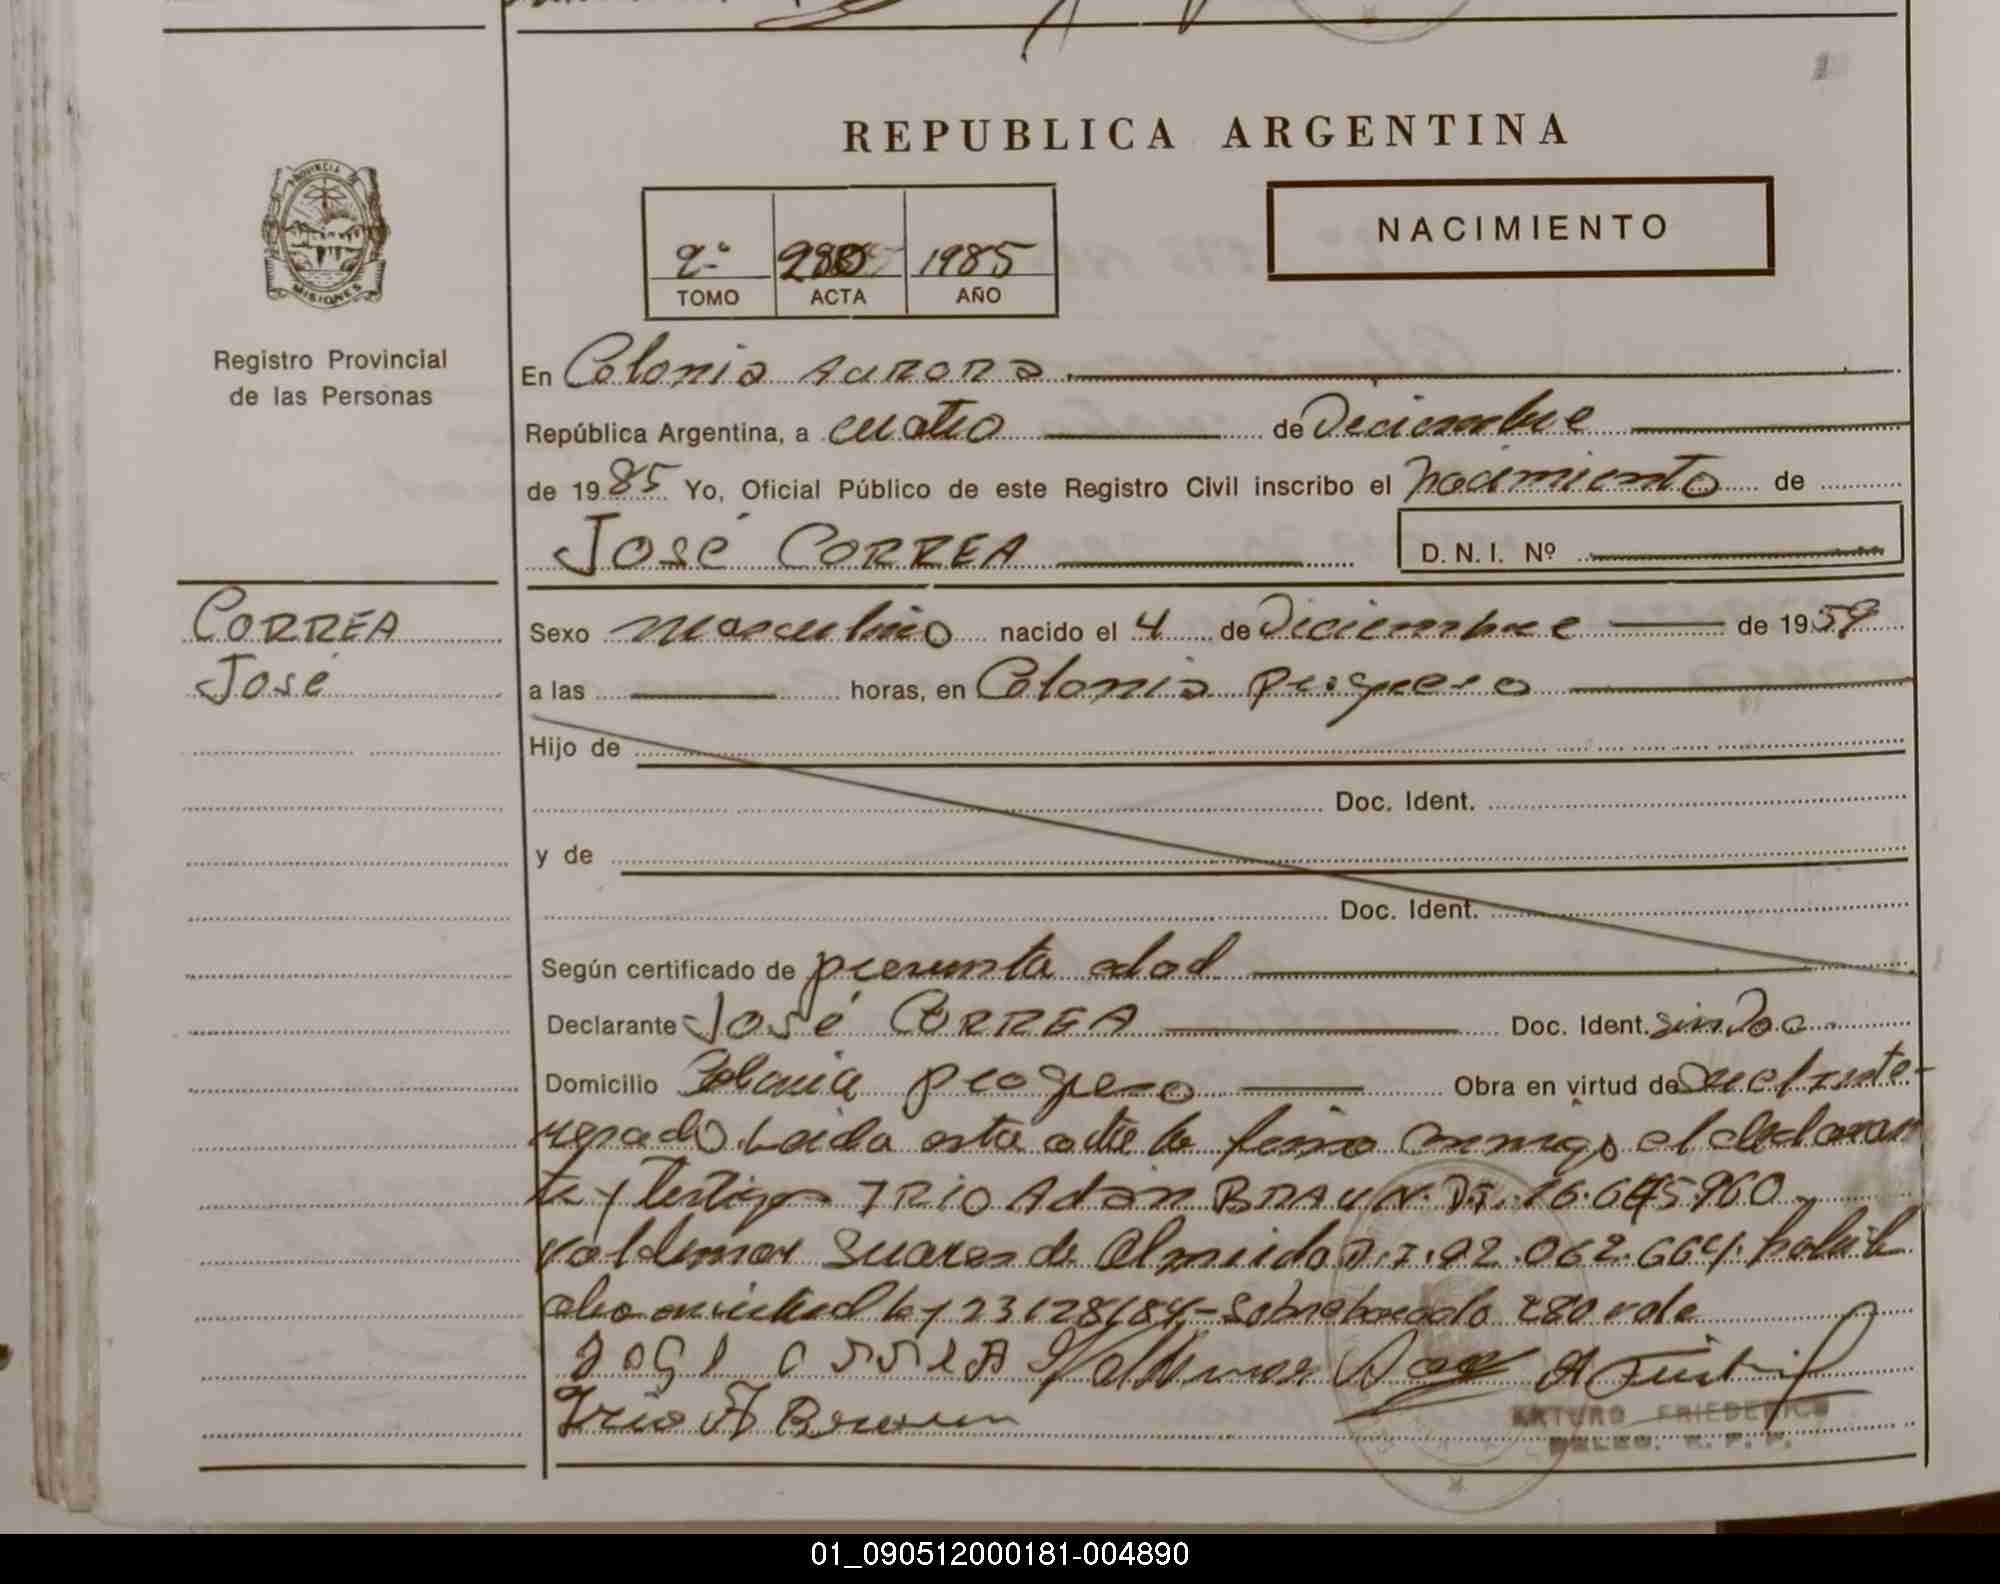 REPUBLICA ARGENTINA
PROVINCIA DE
MISIONES
Registro Provincial
de las Personas
2º 280 1985
TOMO ACTA AÑO
NACIMIENTO
En Colonia Aurora
República Argentina, a cuatro de Diciembre
de 1985 Yo, Oficial Público de este Registro Civil inscribo el nacimiento de
José CORREA D.N.I. Nº
CORREA
José
Sexo masculino nacido el 4 de Diciembre de 1959
a las horas, en Colonia progreso
Hijo de
Doc. Ident.
y de
Doc. Ident.
Según certificado de presunta edad
Declarante José CORREA Doc. Ident. sin Doc.
Domicilio Colonia progreso Obra en virtud de Ser el inte-
resado. Leida esta acta la firma conmigo el declaran
te y testigos IRIO Adan BRAUN. D.I. 16.645.960 y
Valdemar Suares de Almeida D.I. 92.062.664.
ley 23128/84 - Sobreborrado 280 vale
Valdemar
Irio A Braun
ARTURO FRIEDERICH
DELEG. R. P. P.
01_090512000181-004890